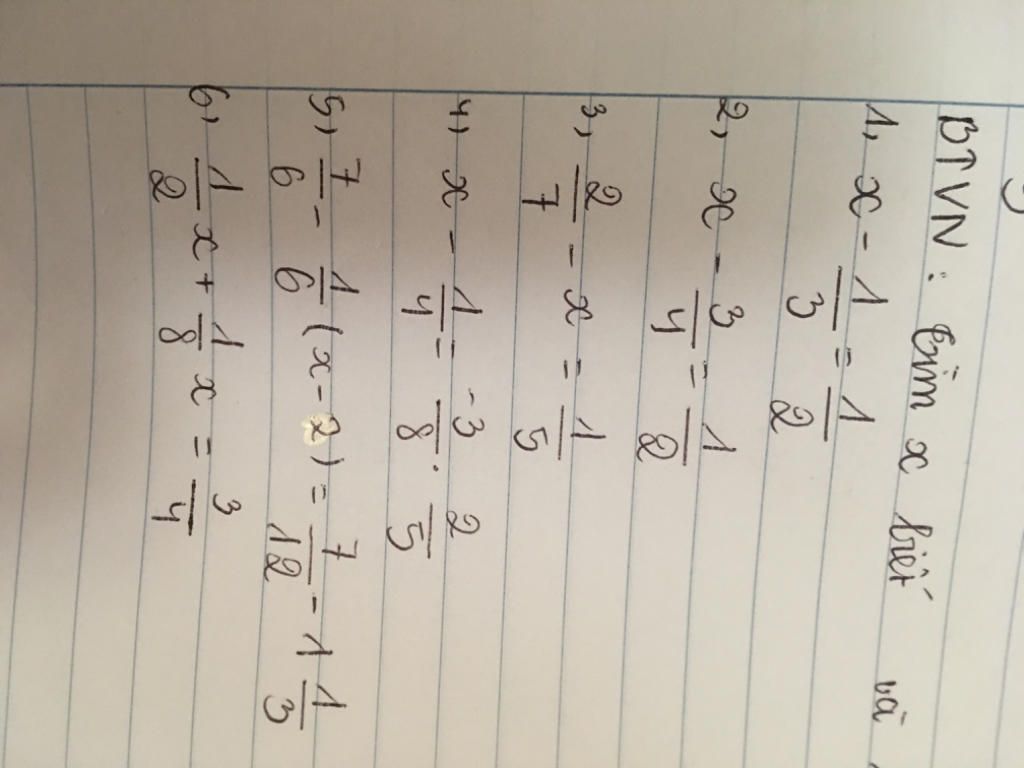 BTVN: tìm x biết và
1, x - 1/3 = 1/2
2, x - 3/4 = 1/2
3, 2/7 - x = 1/5
4, x - 1/4 = -3/8 . 2/5
5, 7/6 - 1/6 (x - 2) = 7/12 - 1 1/3
6, 1/2 x + 1/8 x = 3/4